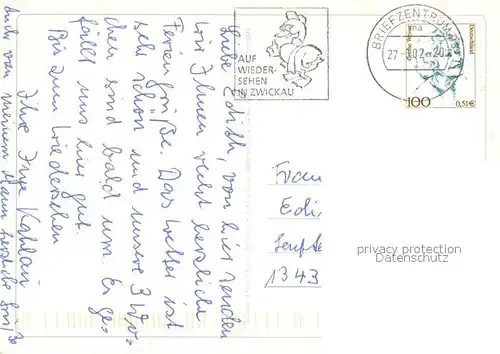 Liebe Edith, von hier senden
wir Ihnen recht herzliche
Feriengrüße. Das Wetter ist
sehr schön und unsere 3 Wo=
chen sind bald um. Es ge=
fällt uns hier gut.
Bis zum Wiedersehen
Ihre Frau
Auch von meinem Mann herzliche Grüße
AUF
WIEDER-
SEHEN
IN ZWICKAU
BRIEFZENTRUM
27
02
20
Deutschland
100
0,51€
Frau
Edi
1343
privacy protection
Datenschutz